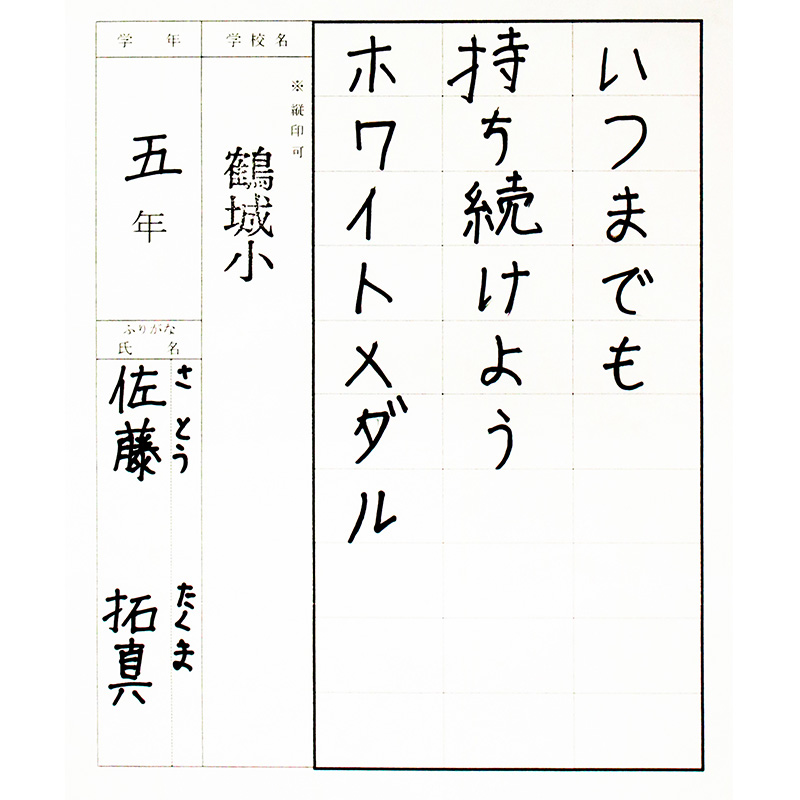 いつまでも
持ち続けよう
ホワイトメダル
学校名
※縦印可
鶴城小
学年
五年
ふりがな
氏名
さとう たくま
佐藤 拓真